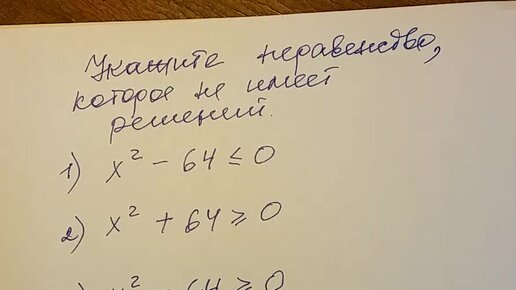 Укажите неравенство,
которое не имеет
решений.
1) x² − 64 ≤ 0
2) x² + 64 ≥ 0
x² 64 ≥ 0